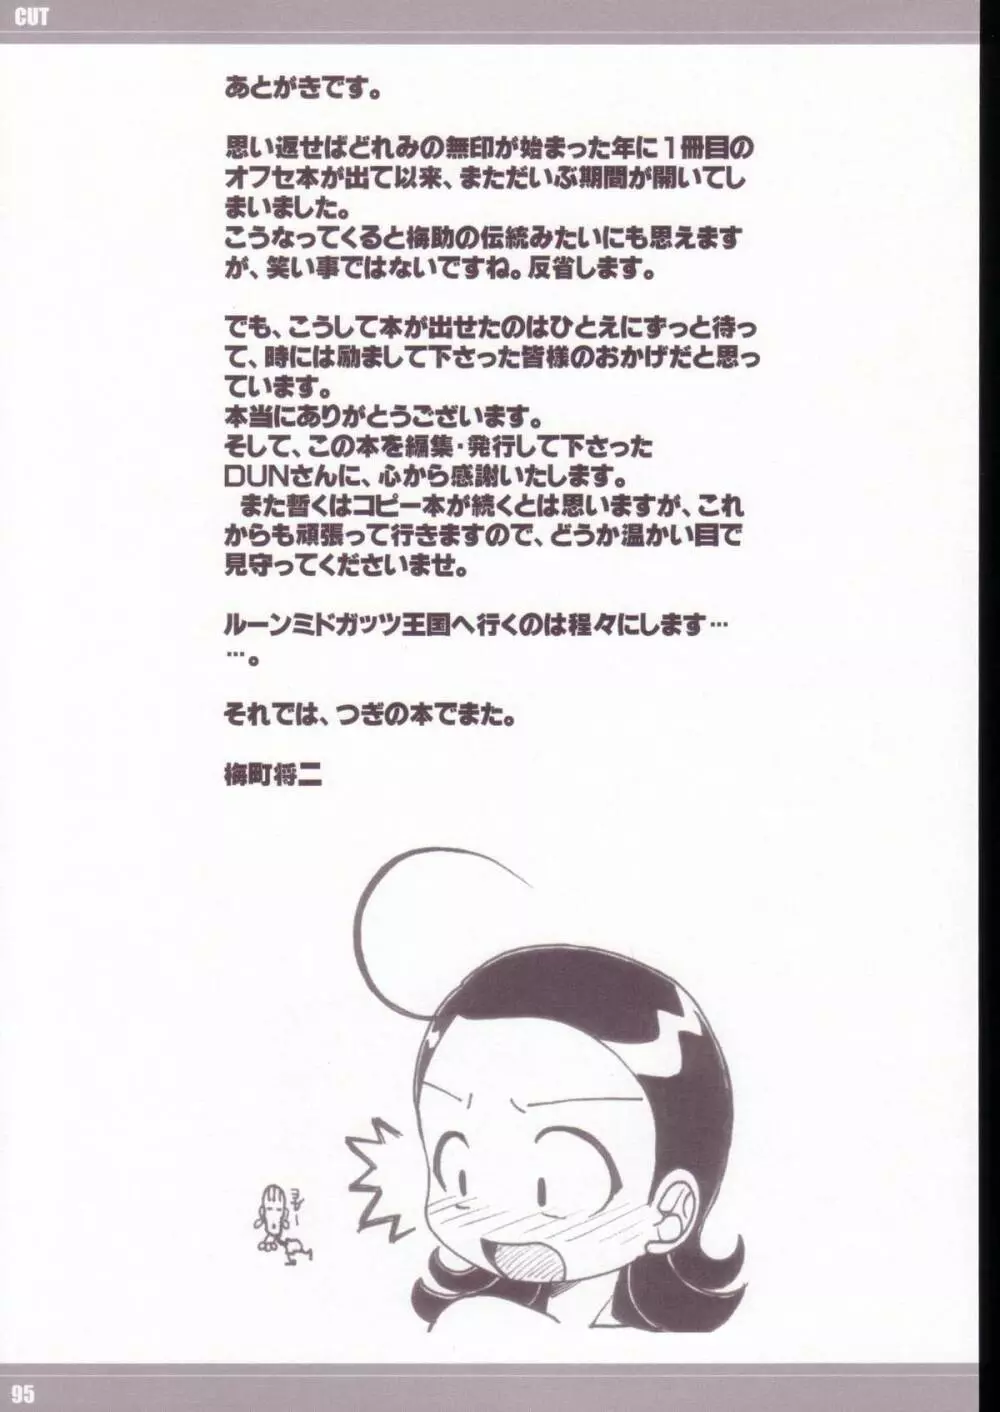 CUT
あとがきです。
思い返せばどれみの無印が始まった年に１冊目の
オフセ本が出て以来、まただいぶ期間が開いてし
まいました。
こうなってくると梅助の伝統みたいにも思えます
が、笑い事ではないですね。反省します。
でも、こうして本が出せたのはひとえにずっと待っ
て、時には励まして下さった皆様のおかげだと思っ
ています。
本当にありがとうございます。
そして、この本を編集・発行して下さった
DUNさんに、心から感謝いたします。
また暫くはコピー本が続くとは思いますが、これ
からも頑張って行きますので、どうか温かい目で
見守ってくださいませ。
ルーンミドガッツ王国へ行くのは程々にします…
…。
それでは、つぎの本でまた。
梅町将二
95